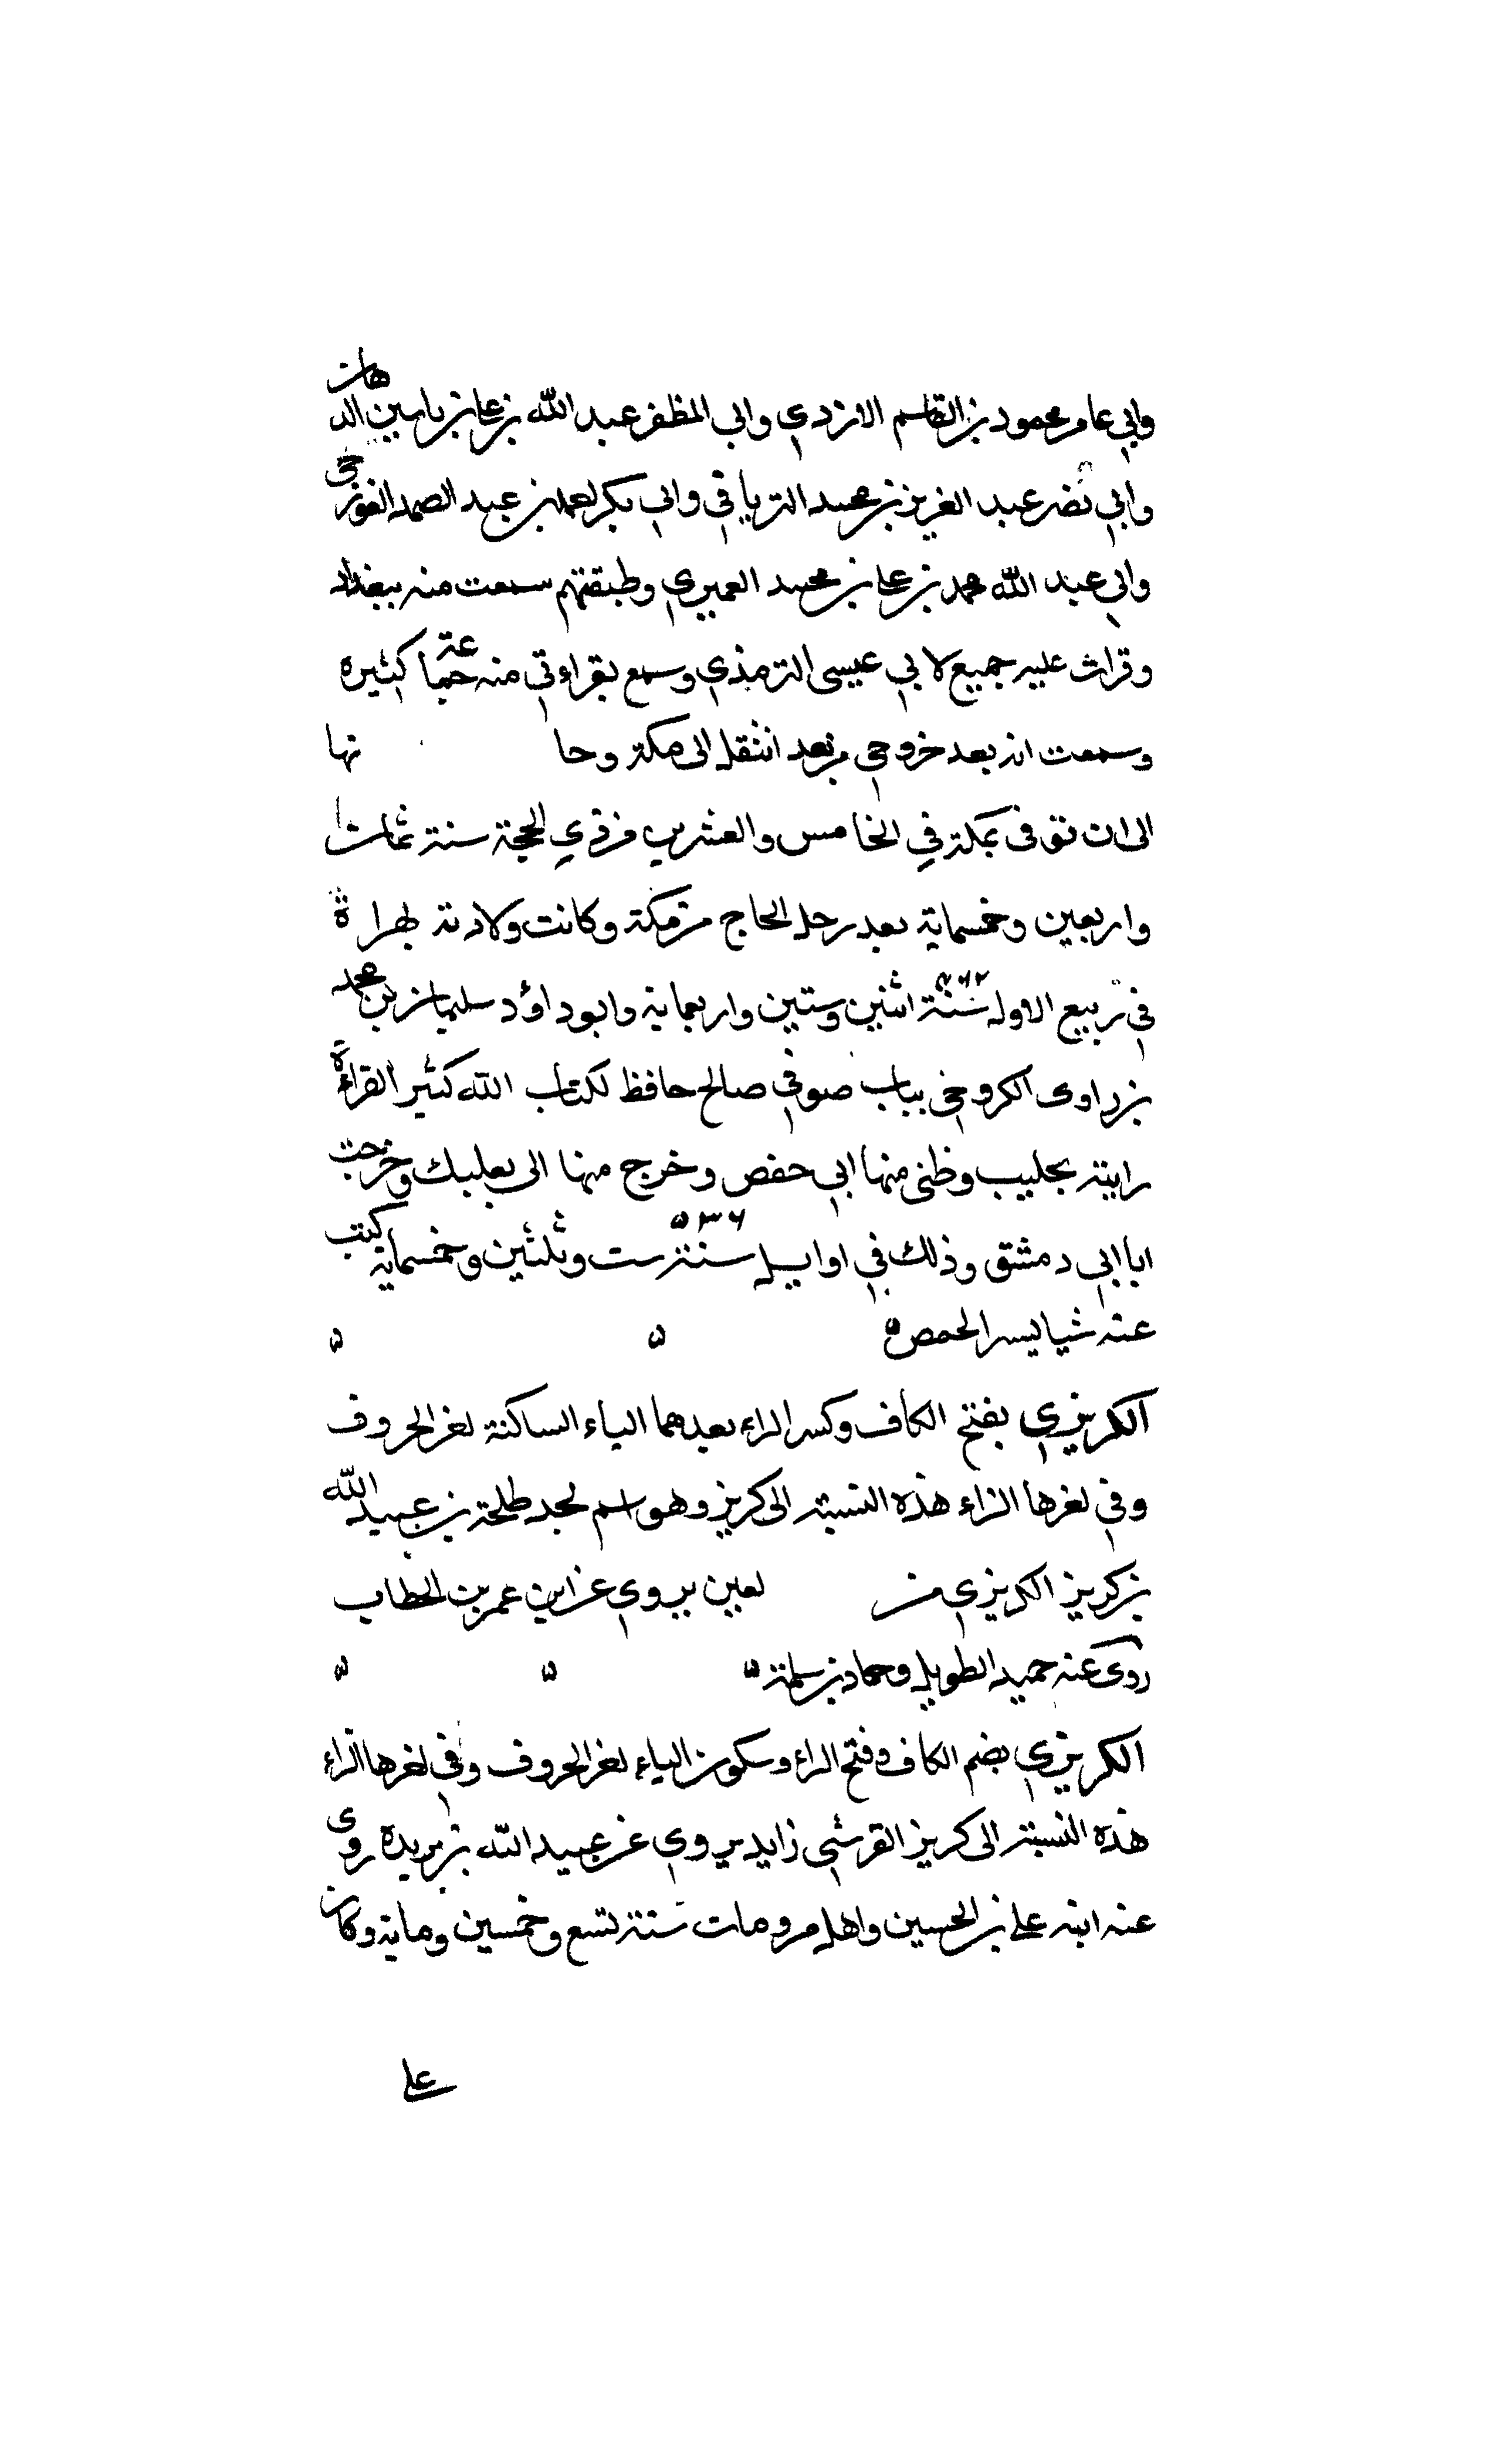 وابي عامر محمود بن القاسم الازدي وابي المظفر عبد الله بن علي بن ياسين الدهان
وابي نضر عبد العزيز بن محمد الترياقي وابي بكر احمد بن عبد الصمد الغورجي
وابي عبد الله محمد بن علي بن محمد العميري وطبقتهم سمعت منه ببغداد
وقرات عليه جميع لابي عيسى الترمذي وسمع بقراءتي منه جماعة كثيرة
وسمعت انه بعد خروجي من بعد انتقل الى مكة وحا نها
الى ان توفى بمكة في الخامس والعشرين من ذي الحجة سنة ثمان
واربعين وخمسماية بعد رحل الحاج من مكة وكانت ولادته بهراة
في ربيع الاول سنة ٤٦٢ اثنين وستين واربعماية وابو داؤد سليمان بن محمد
بن داوى الكروخي بباب صوفي صالح حافظ لكتاب الله كثير القراءة
رايته بحليب وظنى منها ابي حفص وخرج منها الى بعلبك وخرجت
ايا ابي دمشق وذلك في اوايل سنة ٥٣٦ ست وثلثين وخمسماية كتب
عنه شيا يسر الحمص ٥ ٥ ٥
الكريزي بفتح الكاف وكسر الراء بعدهما الياء الساكنة لغر الحروف
وفي لغرها الزاء هذه النسبة الى كريز وهو اسم لجد طلحة بن عبيد الله
بن كريز الكريزي من لعين يروي عن ابن عمر بن الخطاب
روى عنه حميد الطويل وحماد بن سلمة ٥ ٥ ٥
الكريزي بضم الكاف وفتح الراء وسكون الياء لغر الحروف وفي لغرها الزاء
هذه النسبة الى كريز القرشي زايد يروي عن عبيد الله بن بريدة روى
عنه ابنه علي بن الحسين واهل مرو مات سنة تسع وخمسين وماية وكان
علي